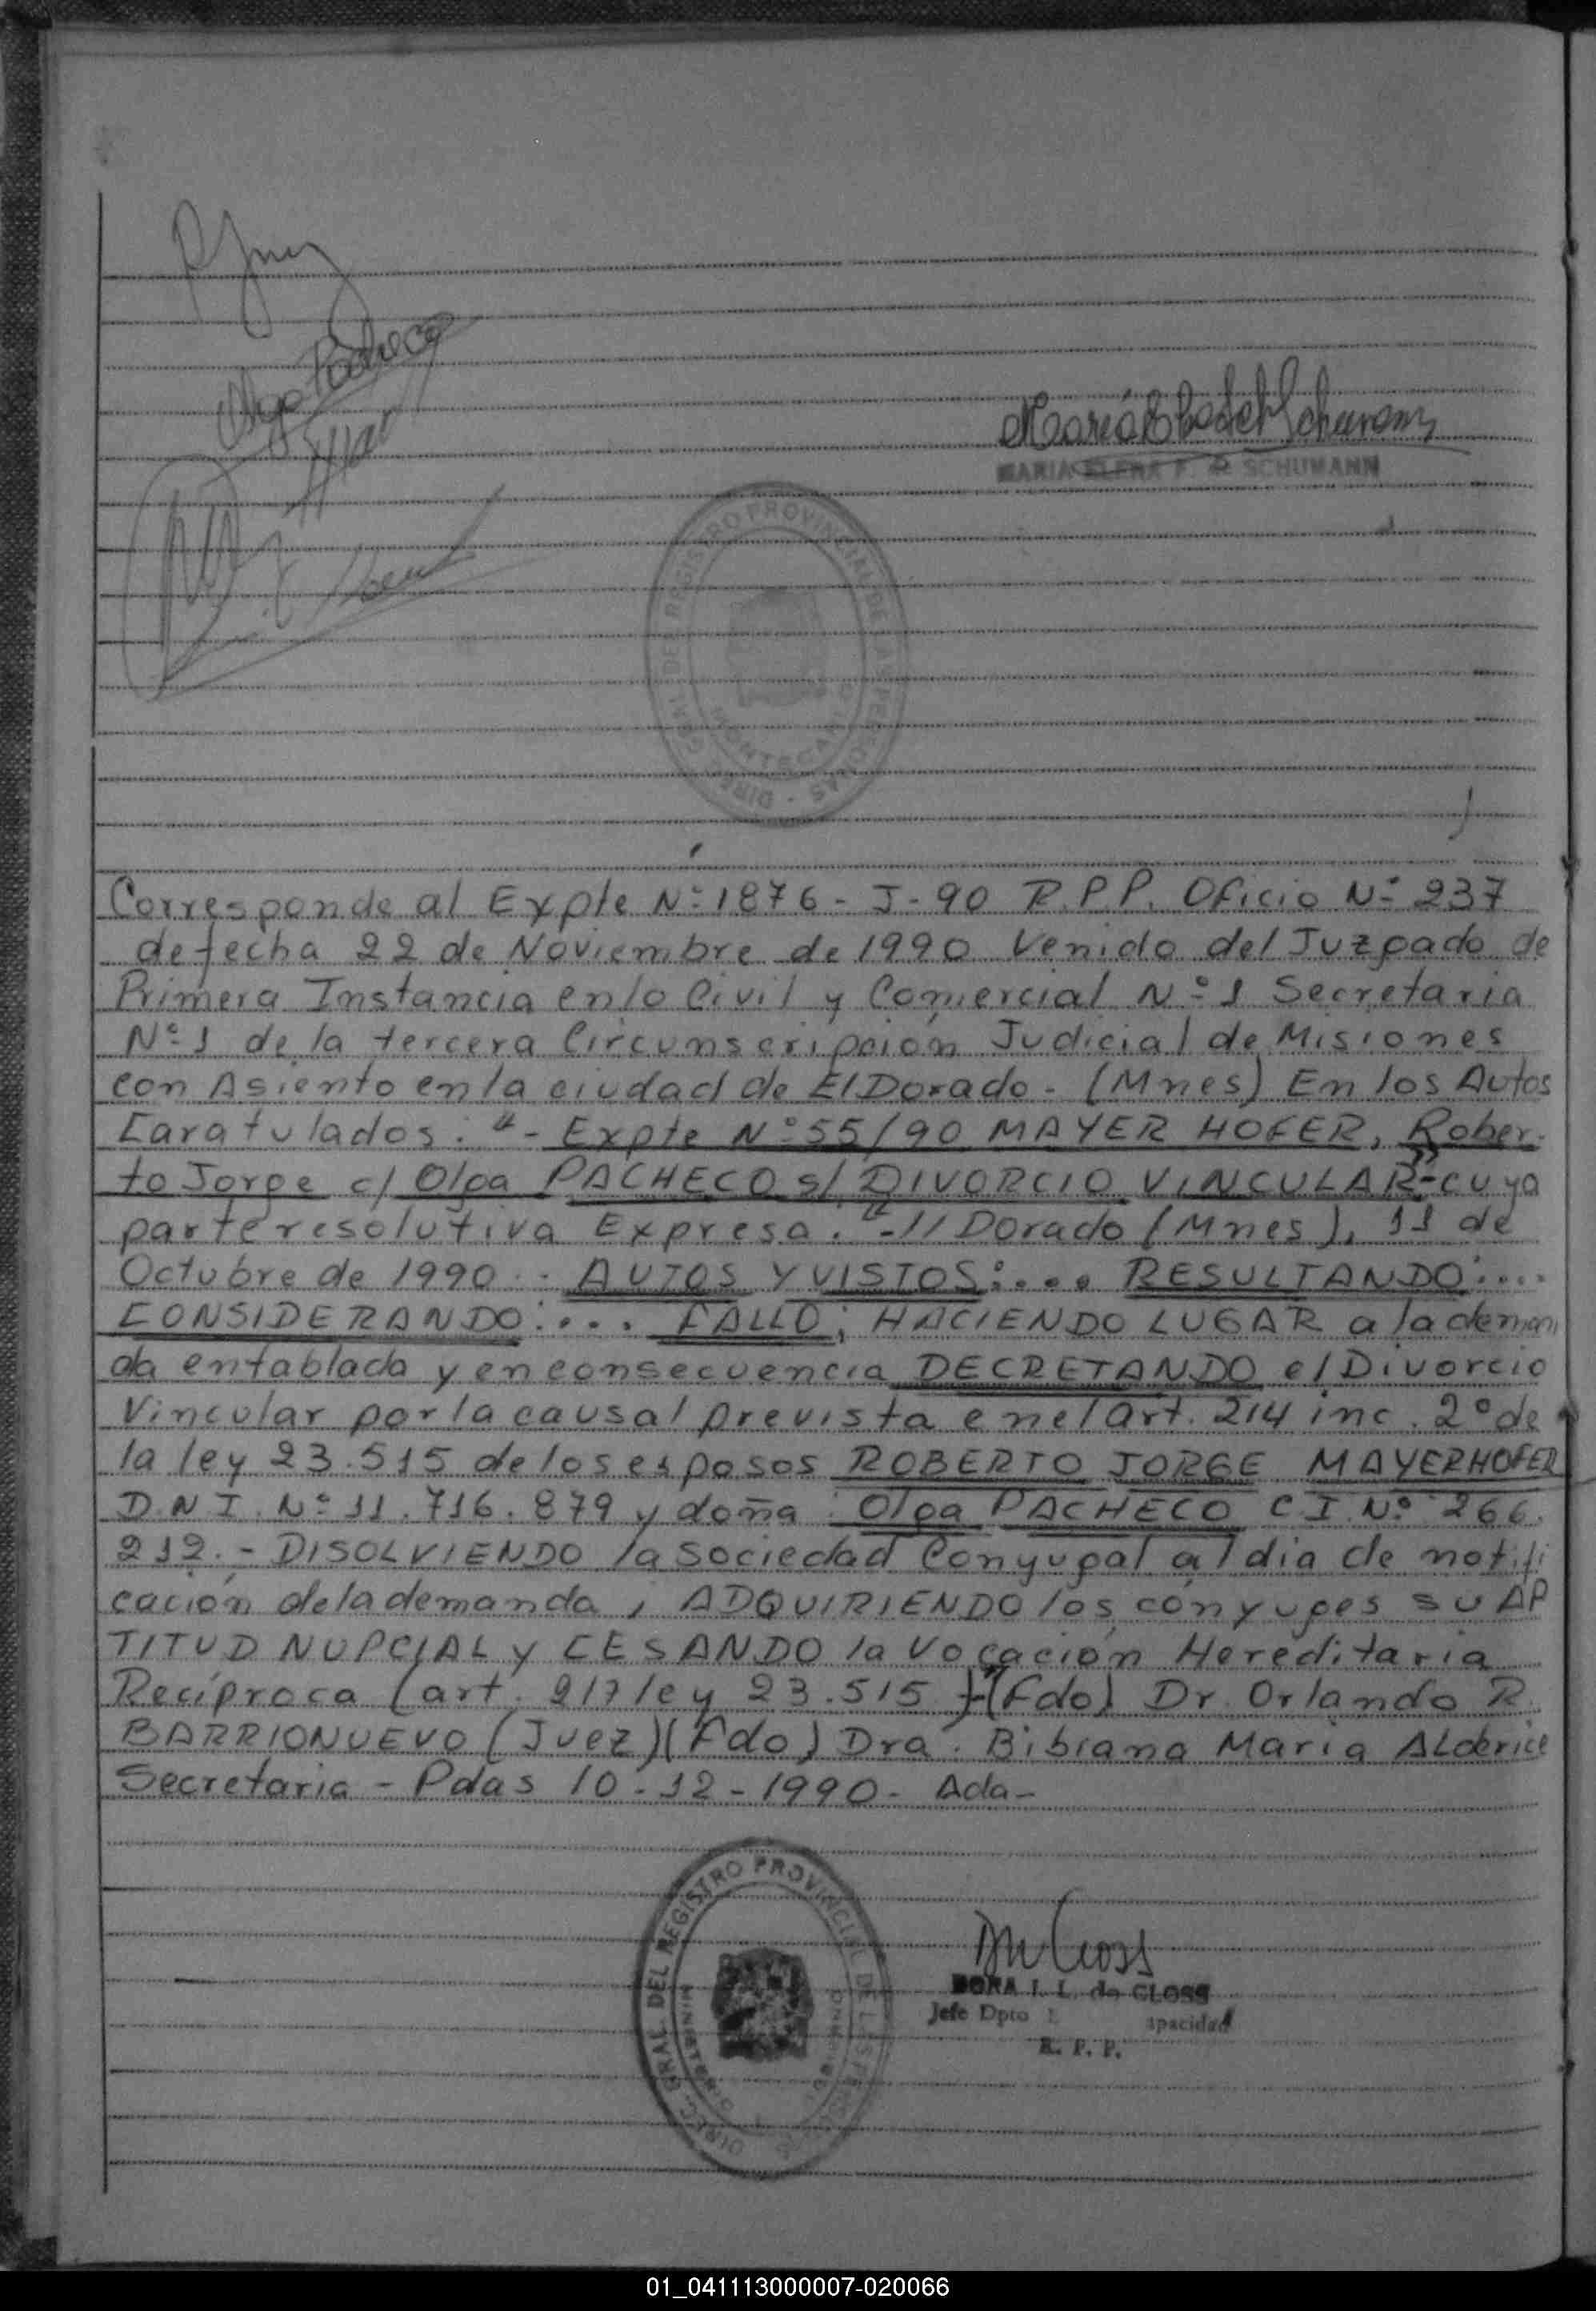 Olga Pacheco
MARIA ELENA F. de SCHUMANN
DIREC. GRAL. DEL REGISTRO PROVINCIAL DE LAS PERSONAS
MONTECARLO
Corresponde al Expte Nº 1876 - J - 90 R.P.P. Oficio Nº 237
de fecha 22 de Noviembre de 1990 Venido del Juzgado de
Primera Instancia en lo Civil y Comercial Nº 1 Secretaria
Nº 1 de la tercera Circunscripción Judicial de Misiones
con Asiento en la ciudad de El Dorado - (Mnes) En los Autos
Caratulados: "- Expte Nº 55/90 MAYER HOFER, Rober-
to Jorge c/ Olga PACHECO s/ DIVORCIO VINCULAR"- cuya
parte resolutiva Expresa: "-// Dorado (Mnes), 11 de
Octubre de 1990 - AUTOS Y VISTOS:.... RESULTANDO:....
CONSIDERANDO:.... FALLO; HACIENDO LUGAR a la deman
da entablada y en consecuencia DECRETANDO el Divorcio
Vincular por la causal prevista en el art. 214 inc. 2º de
la ley 23.515 de los esposos ROBERTO JORGE MAYERHOFER
D.N.I. Nº 11.716.879 y doña: Olga PACHECO C.I. Nº 266.
212.- DISOLVIENDO la sociedad Conyugal al dia de notifi
cación de la demanda, ADQUIRIENDO los cónyuges su AP
TITUD NUPCIAL y CESANDO la Vocación Hereditaria
Recíproca (art. 217 ley 23.515)-"(Fdo) Dr. Orlando R.
BARRIONUEVO (Juez)(Fdo) Dra. Bibiana Maria ALderice
Secretaria - Pdas 10-12-1990 - Ada-
DIREC. GRAL. DEL REGISTRO PROVINCIAL DE LAS PERSONAS
DORA I. L. de GLOSS
Jefe Dpto
apacidad
R. P. P.
01_041113000007-020066